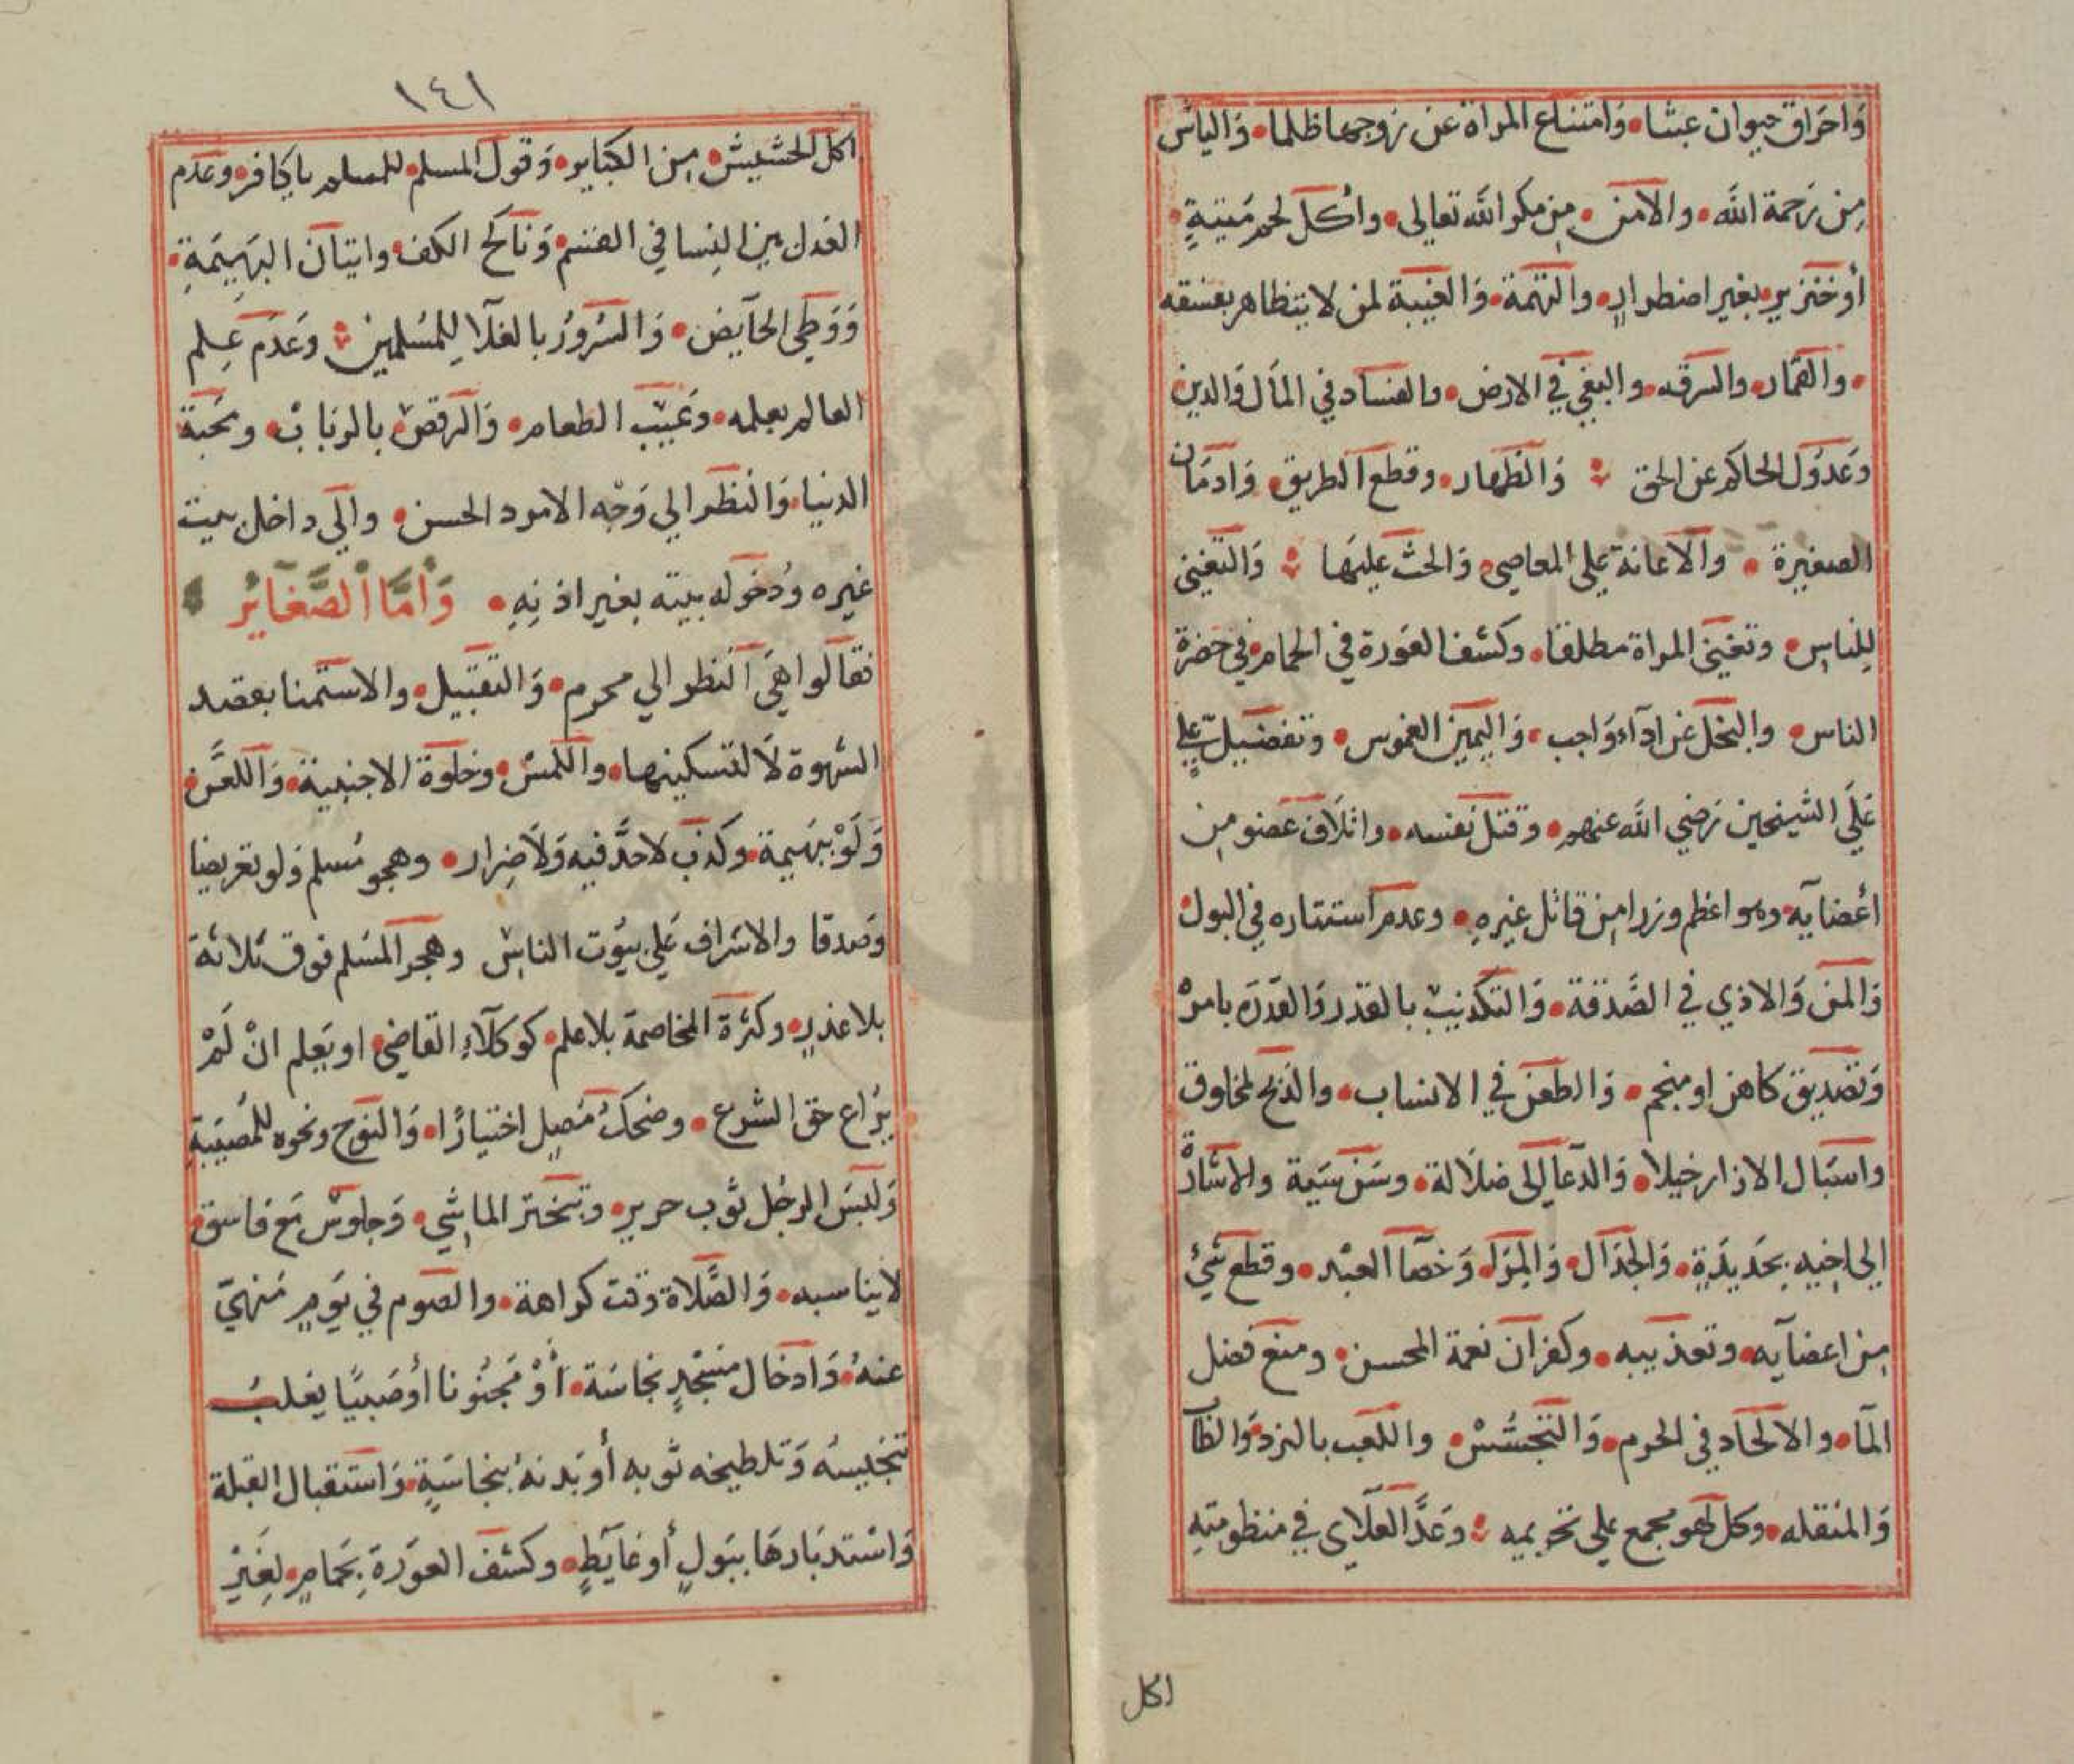 وَاحرَاق حيوان عبثا وَامتناع المراة عن زوجها ظلما وَالياس
مِن رَحمة الله والامن مِن مكر الله تعالى وأكل لحم مَيتةٍ
أو خنزير بغير اضطرارٍ والنميمة وَالغيبة لمن لا يتظاهر بفسقه
والقمار والسرقه والبغي في الارض والفساد في المال وَالدين
وَعدول الحاكم عن الحق وَالظهار وقطع الطريق وَادمَان
الصغيرة والاعانة على المعاصي وَالحث عليهَا وَالتغني
لِلناس وتغني المراة مطلقا وكشف العَورة في الحمام في حَضرة
الناس والبخل عن ادآء وَاجب وَاليمين الغموس وتفضيل علي
عَلَى الشيخين رَضي الله عنهم وقتل نفسه واتلاف عضو مِن
اعضايه وهو اعظم وزرا مِن قاتل غيرهِ وعدم استتاره في البول
وَالمن وَالاذي في الصَّدقة وَالتكذيب بالقدر وَالغدرَ بامرْ
وَتصديق كاهن او منجم وَالطعن في الانساب والذبح لمخلوق
واسبَال الازار خيلا وَالدّعا الى ضلالة وسَن سَيئة والاشارة
الى اخِيه بحَديدَةٍ وَالجدَال وَالمِرَا وَخصآ العبْد وقطع شئ
مِن اعضآيه وتعذيبه وكفران نعمة المحسن ومنع فضل
المآء والالحاد في الحرم وَالتجسُسْ واللعب بالنرد وَالطآ
وَالمنقله وكل لهو مجمع علي تحريمه وَعَدَّ العلآي في منظومتهِ
اكل
١٤١
اكل الحشيش مِن الكبايرِ وَقول المسلم للمسلم ياكافر وعَدَم
العَدل بين النِسا في القسْم وَناكح الكف واتيان البَهِيمَةِ
وَوَطي الحآيض وَالسُرورُ بالغلآ لِلمُسلمين وَعَدَم عِلم
العالم بعلمه وَعَيب الطعام وَالرقص بالرباب ومحَبة
الدنيا وَالنظر الي وَجْه الامرد الحسن والَي داخل بيت
غيره وَدُخوله بيته بغير اذنِهِ وَأمَّا الصَّغَايُر
فقالوا هَي النظر الي محرم وَالتقبيل والاستمنا بقصد
الشهوة لَا لتسكينها واللمسْ وخلوة الاجنبية وَاللعَّن
وَلَوْ بَبهيمة وكذب لاحدَّ فيه وَلَا ضِرار وهجو مُسلم وَلو تعريضا
وَصدقا والاشراف عَلي بيُوت الناسِ وهجر المسَلم فوق ثلاثة
بلا عذرٍ وكثرة المخاصمة بلا علم كوكلآءِ القاضي او يَعلم انْ لَمْ
يرَاع حق الشرع وضحك مُصلٍ اختيارًا وَالنوح ونحوه للمُصيَبةِ
وَلبسَ الرجُل ثوب حرير وتبختر الماشي وَجلوسْ مَع فاسق
لايناسبه وَالصَّلاة وَقت كراهة والصَوم في يَومٍ مَنهيَ
عنهُ وَادخال مَسْجدٍ نجاسَة أوْ مَجنُونا أو صَبيًا يغلبُ
تنجيسُه وَتلطيخه ثوبه أو بَدنهُ بنجاسَةٍ وَاستقبال القبلة
وَاسْتدبَارهَا ببَولٍ أو غايَطٍ وكشف العوَرة بَحمامٍ لِغَيْر